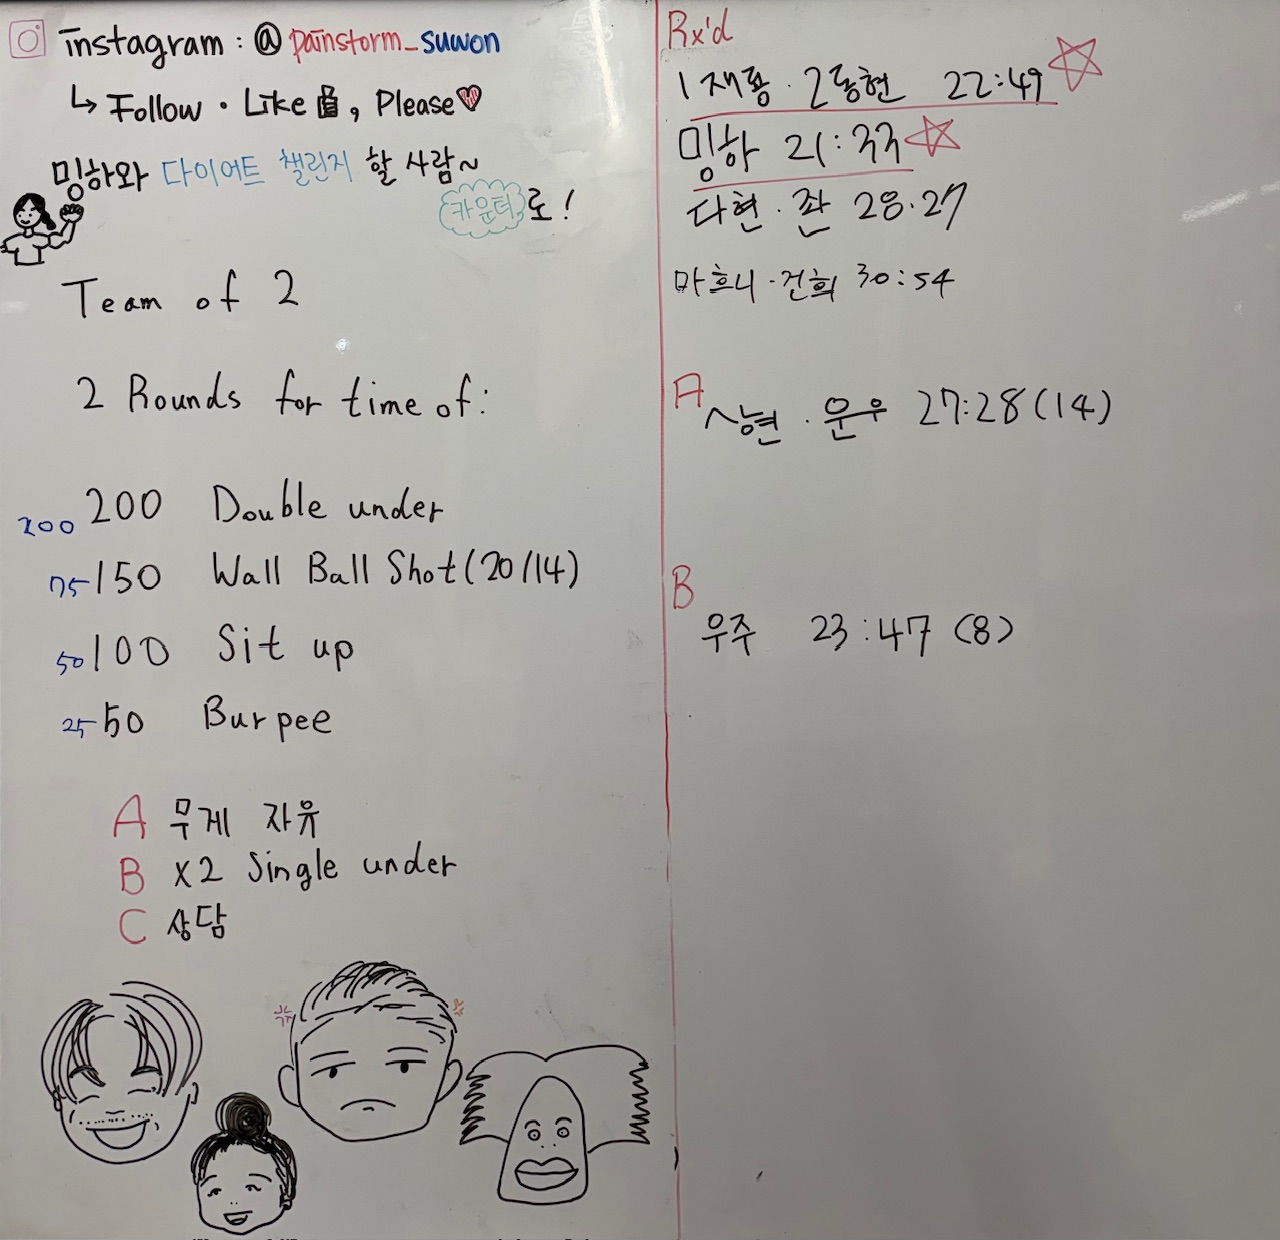 instagram : @ painstorm_suwon
↳ Follow · Like 👍, Please♥
밍하와 다이어트 챌린지 할 사람~
카운터로!
Team of 2
2 Rounds for time of:
200 200 Double under
75 150 Wall Ball Shot (20/14)
50 100 Sit up
25 50 Burpee
A 무게 자유
B x2 Single under
C 상담
Rx'd
1 재용 · 2동현 22:49 ☆
밍하 21:33 ☆
다현 · 좐 28·27
마흐니 · 건희 30:54
A
상현 · 운우 27:28 (14)
B
우주 23:47 (8)